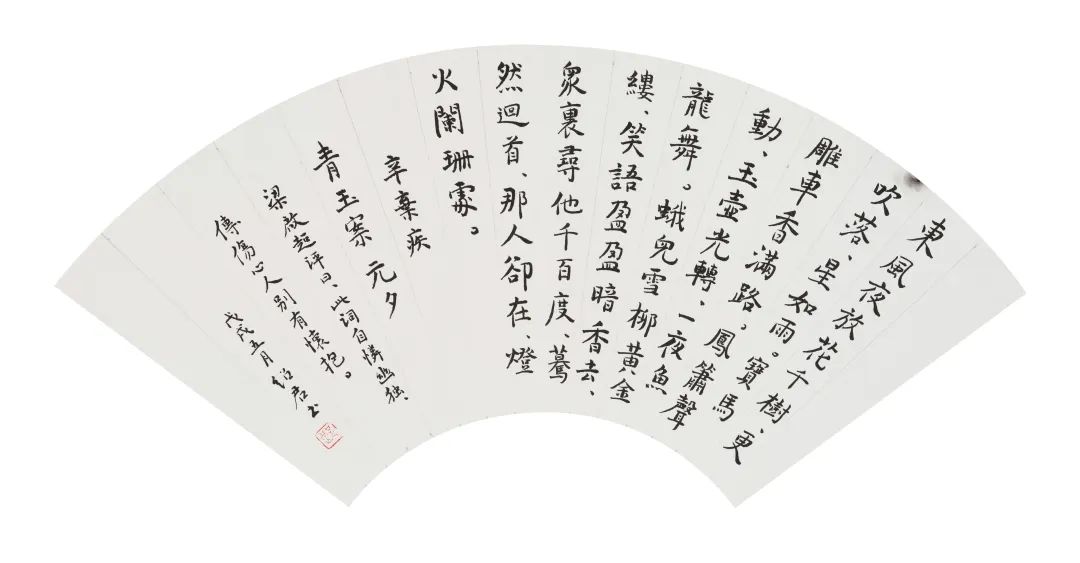 東風夜放花千樹、更
吹落、星如雨。寶馬
雕車香滿路。鳳簫聲
動、玉壺光轉、一夜魚
龍舞。蛾兒雪柳黃金
縷、笑語盈盈暗香去、
衆裏尋他千百度、驀
然迴首、那人卻在、燈
火闌珊處。
辛棄疾
青玉案 元夕
梁啟超評曰、此词自憐幽独、
傷心人别有懷抱。
戊戌五月 绍君书